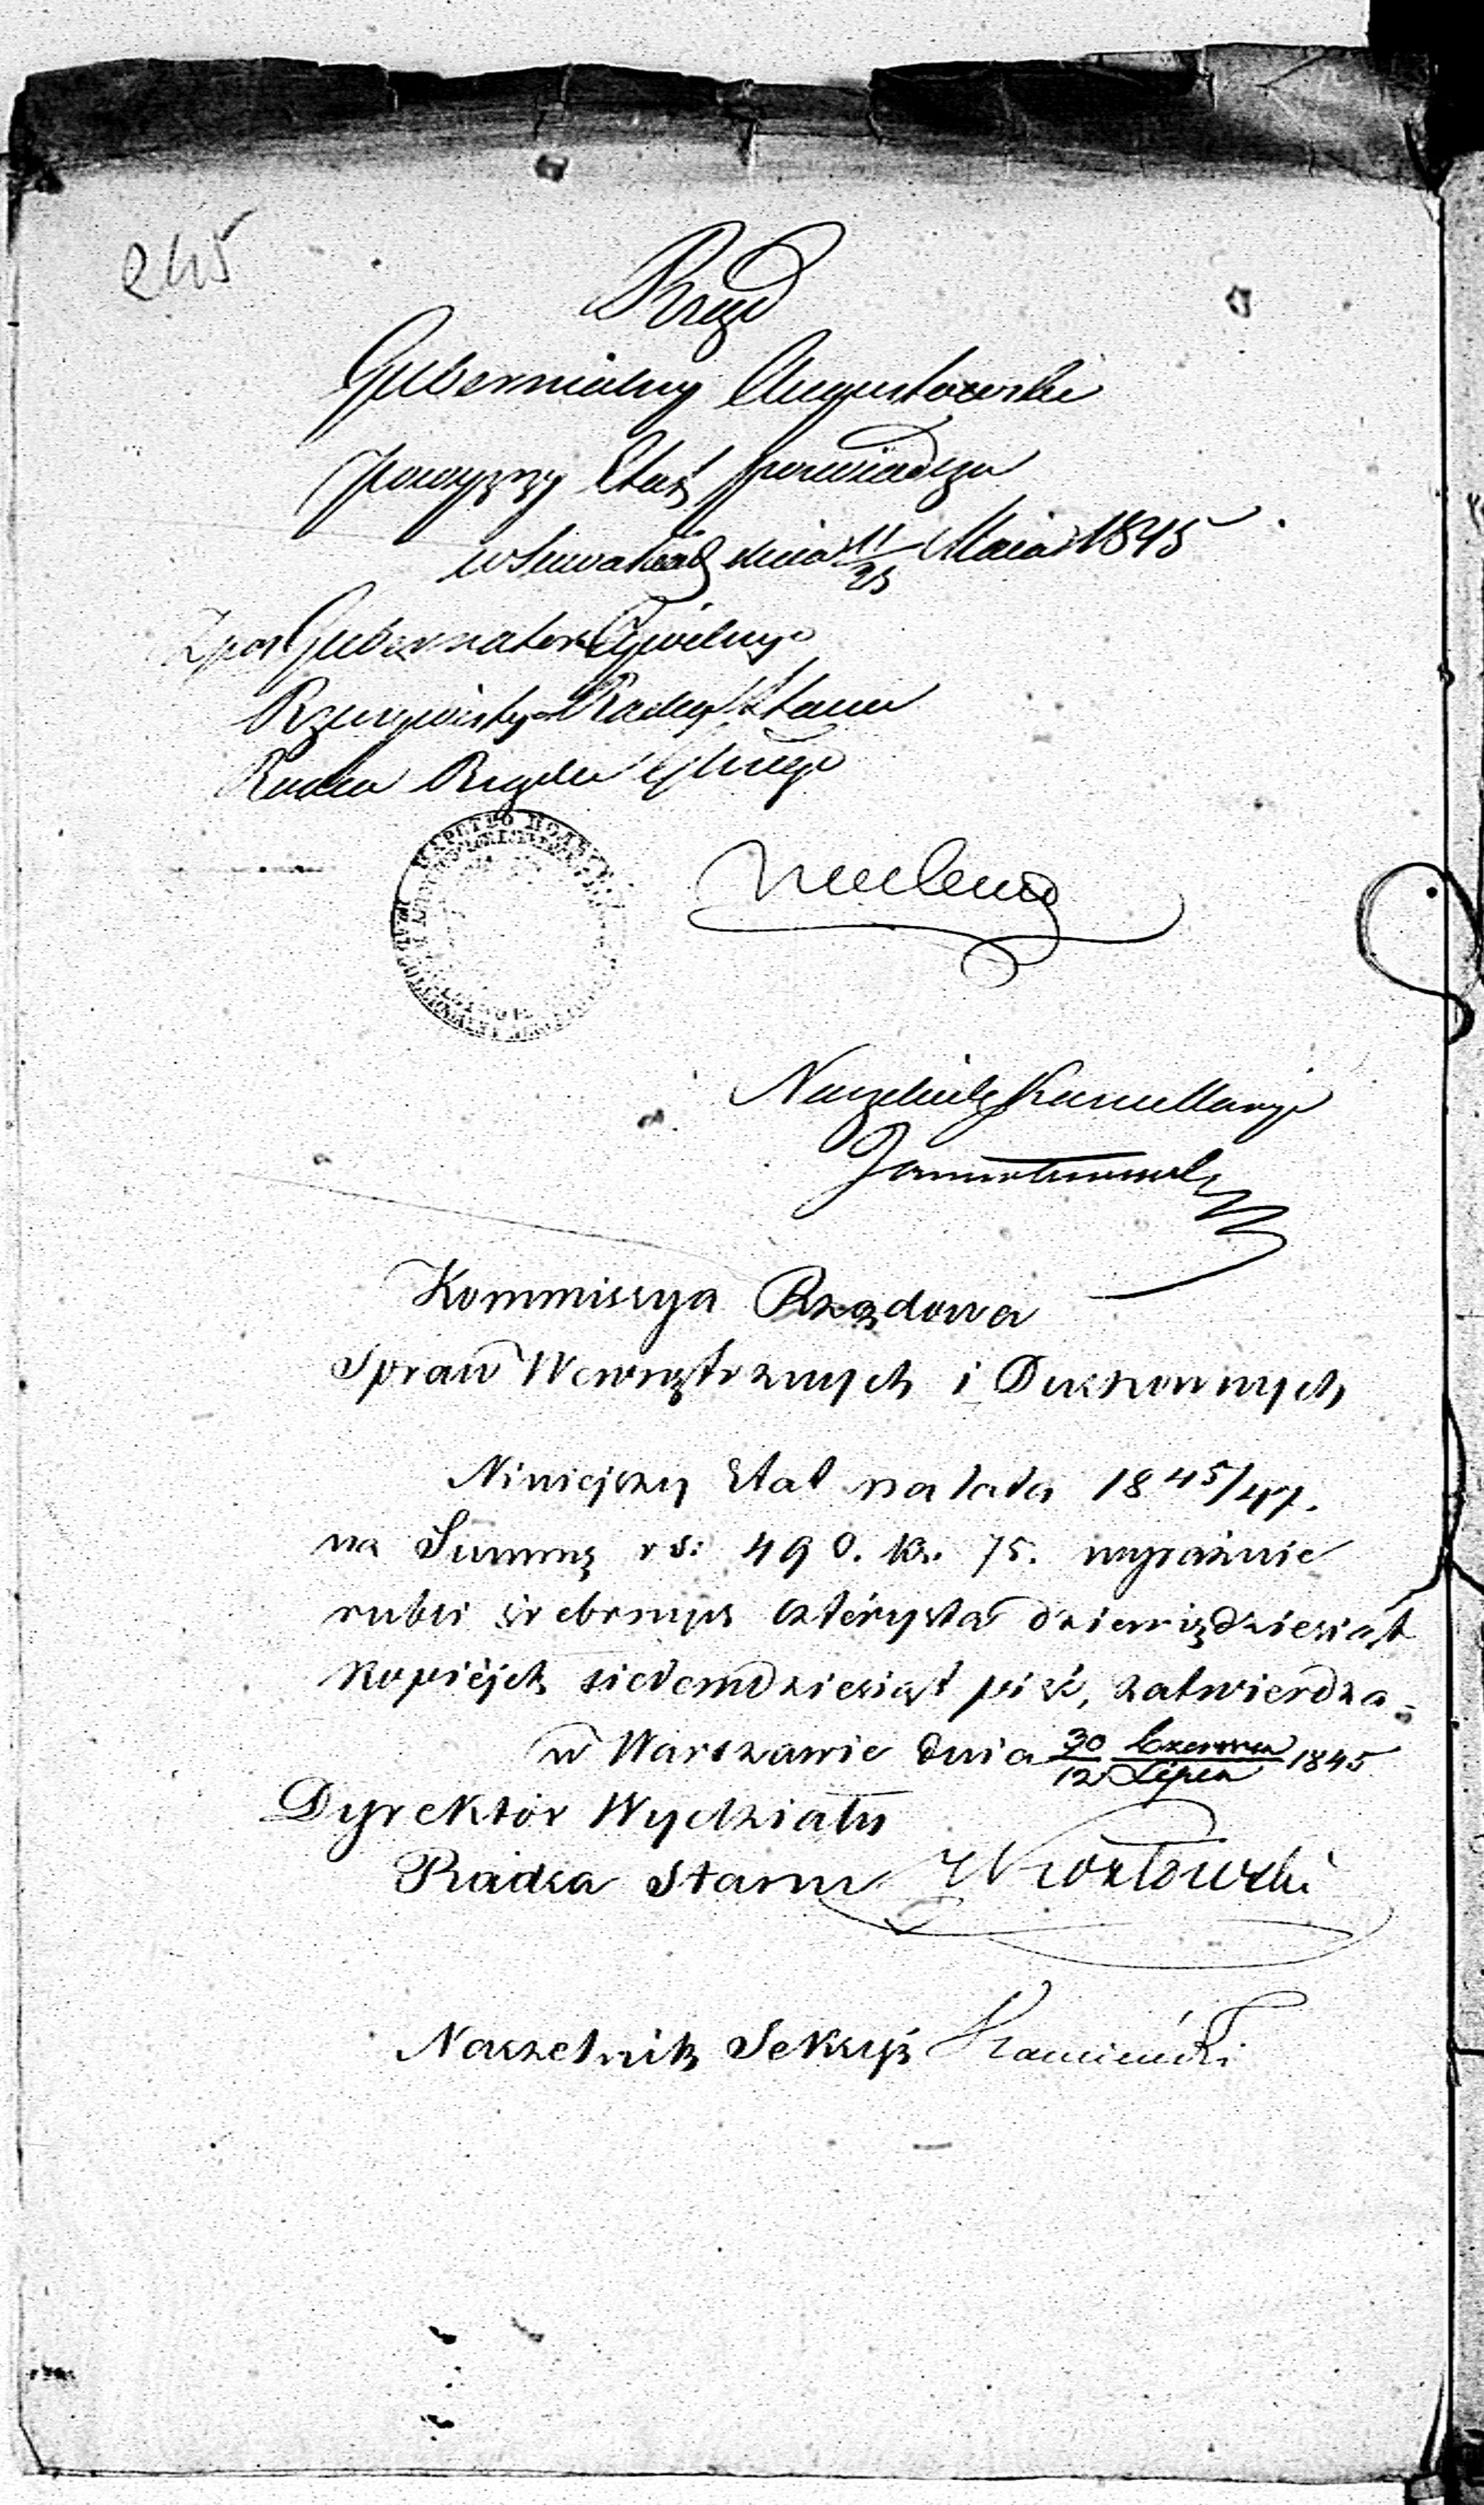 245
Rząd
Gubernialny Augustowski
powyższy Etat poswiadcza
w Suwałkach dnia 11/23 Maia 1845
Gubernatora Cywilnego
Rzeczywistego Radcy Stanu
Radca Rządu
Naczelnik Kancellaryi
Kommissya Rządowa
Spraw Wewnętrznych i Duchownych
Niniejszy Etat na lata 1845/47.
na Summę rs: 490. k. 75. wyraźnie
rubli śrebrnych czterysta dziewięďdziesiąt
kopiéjek siedemdziesiąt pięć, zatwierdza.
w Warszawie dnia 30 Czerwca/12 Lipca 1845
Dyrektór Wydziału
Radca Stanu
Naczelnik Sekcyi Kamieński